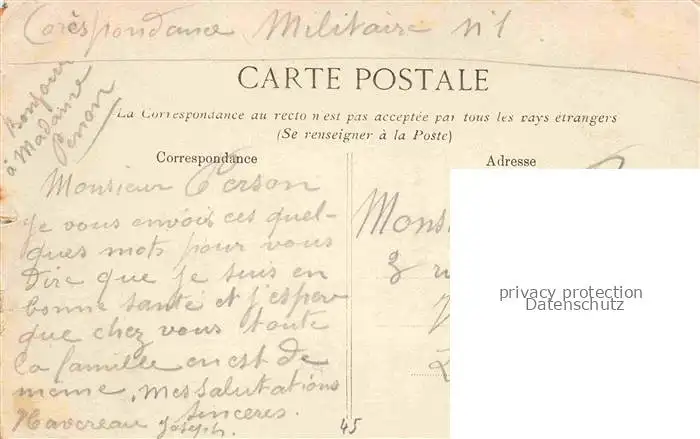 Corèspondance Militaire n°1
Bonjour
à Madame
Person
CARTE POSTALE
La Correspondance au recto n'est pas acceptée par tous les pays étrangers
(Se renseigner à la Poste)
Correspondance
Monsieur Person
Je vous envois ces quel-
ques mots pour vous
dire que je suis en
bonne santé et j'esper
que chez vous toute
la famille en est de
meme. Mes salutations
sinceres.
Havereau Joseph.
45
Adresse
Mons
3 r
privacy protection
Datenschutz